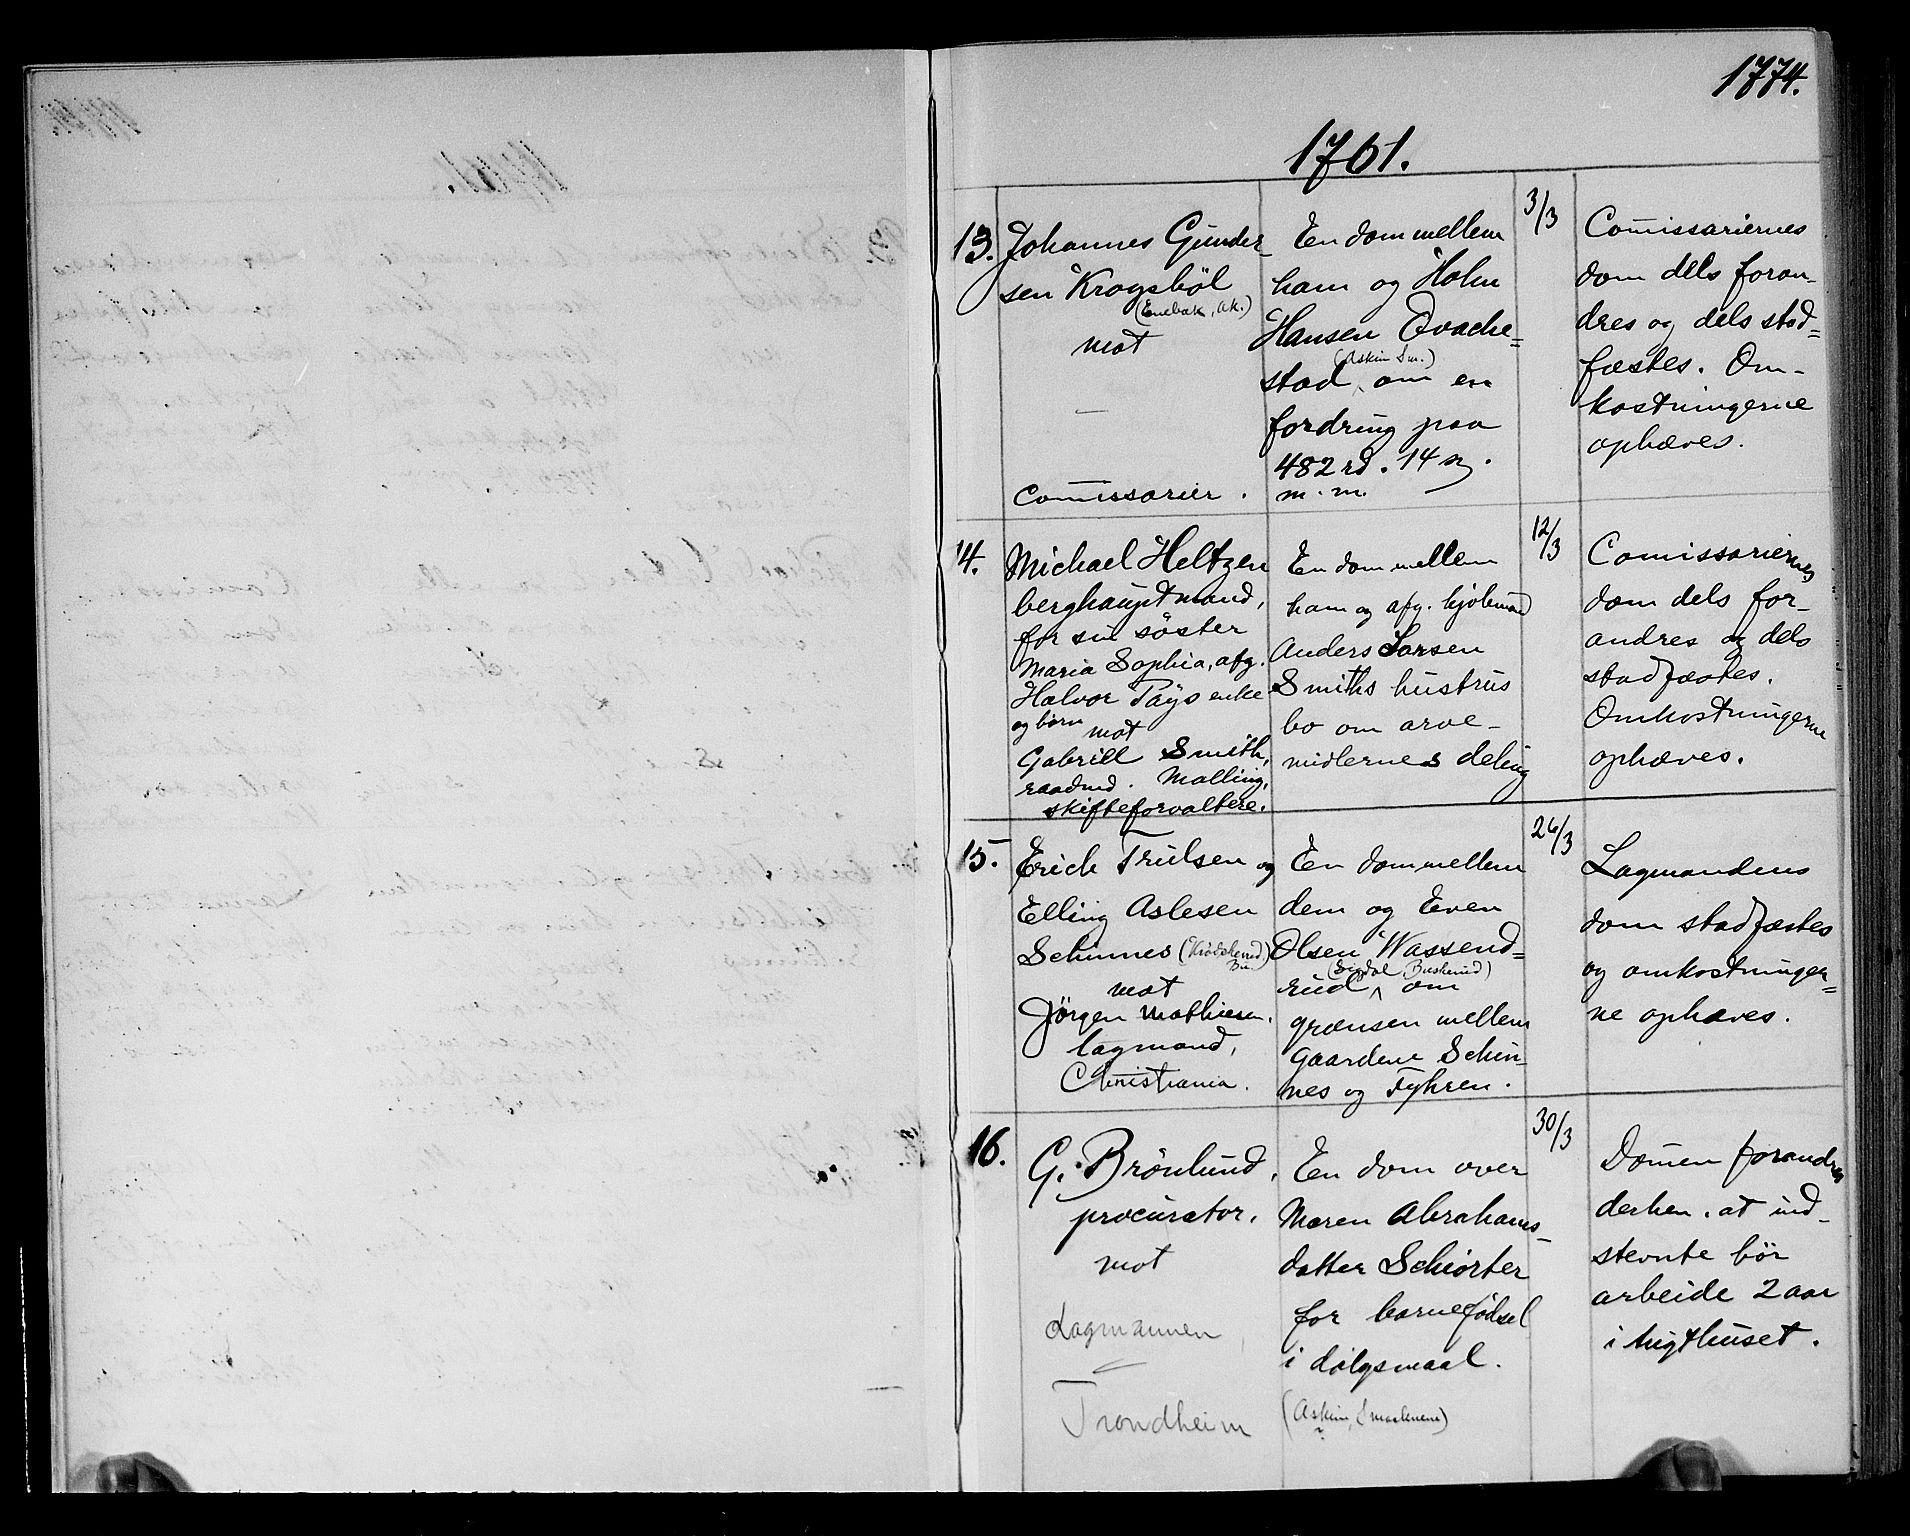 1774.
1761.
13.
Johannes Gunder-
sen Krogsböl
(Enebak, Ak.)
mot
Comissarier.
En dom mellem
ham og Holm
Hansen Ovache=
(Askim Sm.)
stad, om en
fordring paa
482 rd. 14 s.
m. m.
3/3
Comissariernes
dom dels foran-
dres og dels stad=
fæstes. Om-
kostningerne
ophæves.
14.
Michael Heltzen
berghauptmand,
for sin söster
Maria Sophia, afg.
Halvor Pays enke
og børn
mot
Gabriell Smith,
raadmd. Malling,
skifteforvaltere.
En dom mellem
ham og afg. kjøbmand
Anders Larsen
Smiths hustrus
bo om arve-
midlernes deling
12/3
Comissariernes
dom dels for-
andres og dels
stadfæstes.
Omkostningerne
ophæves.
15.
Erich Trulsen og
Elling Aslesen
Schinnes (Krødsherred, Bu.)
mot
Jörgen Mathiesen.
lagmand,
Christiania.
En dom mellem
dem og Even
Olsen Wassend=
(Sigdal, Buskerud)
rud om
grænsen mellem
gaardene Schin-
nes og Fyhren.
26/3
Lagmandens
dom stadfæstes
og omkostninger=
ne ophæves.
16.
G. Brönlund,
procurator.
mot
Lagmannen
Trondheim
En dom over
Maren Abrahams-
datter Schiörter
for barnefødsel
i dølgsmaal.
(Askim, Smaalenene)
30/3
Domen forandres
derhen, at ind-
stevnte bör
arbeide 2 aar
i tugthuset.